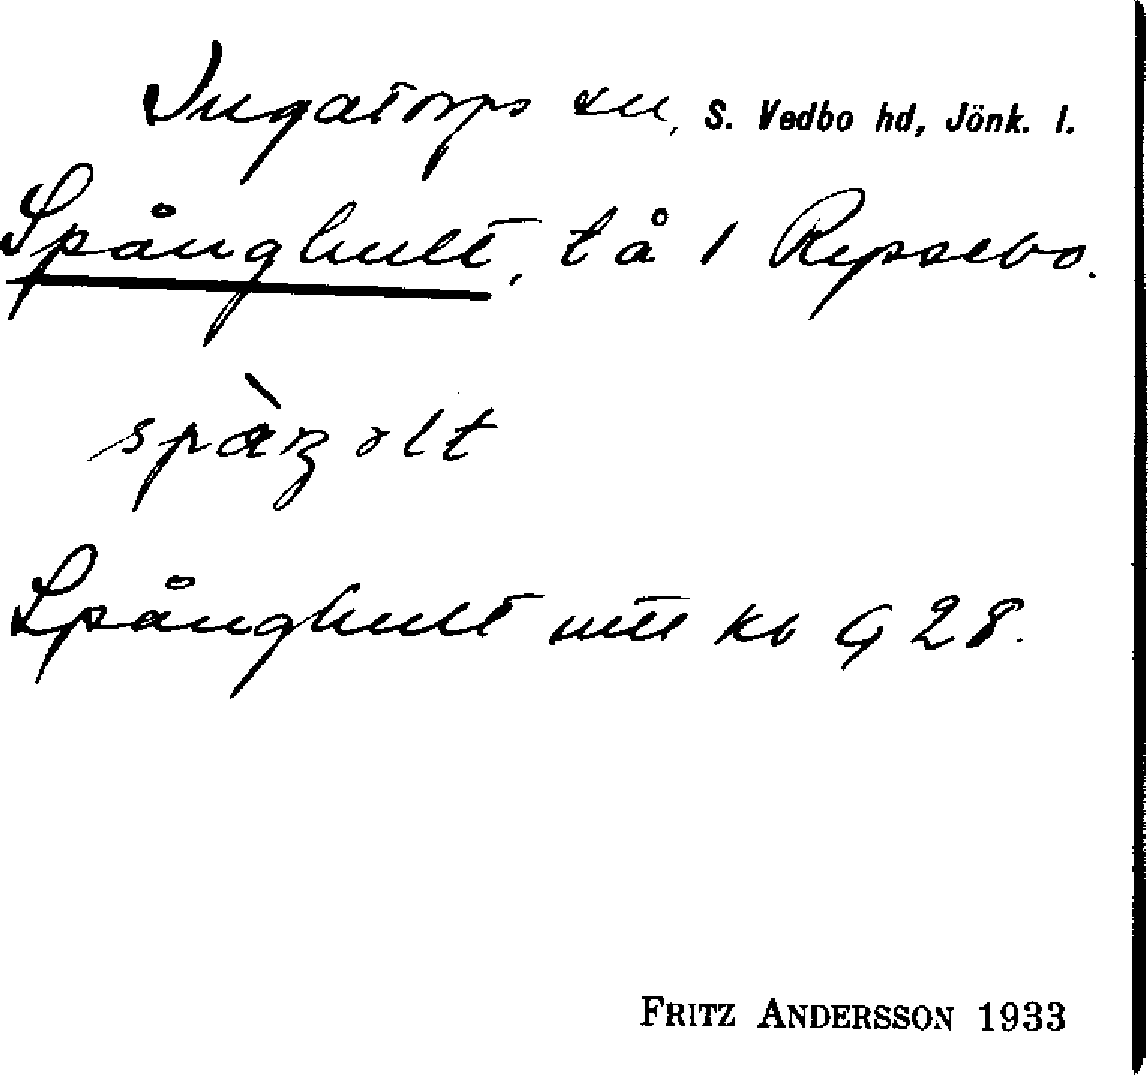 Ingatorps sn, S. Vedbo hd, Jönk. l.
Spånghult, tå 1 Repsebo.
Spånghult utt kb G 28.
FRITZ ANDERSSON 1933